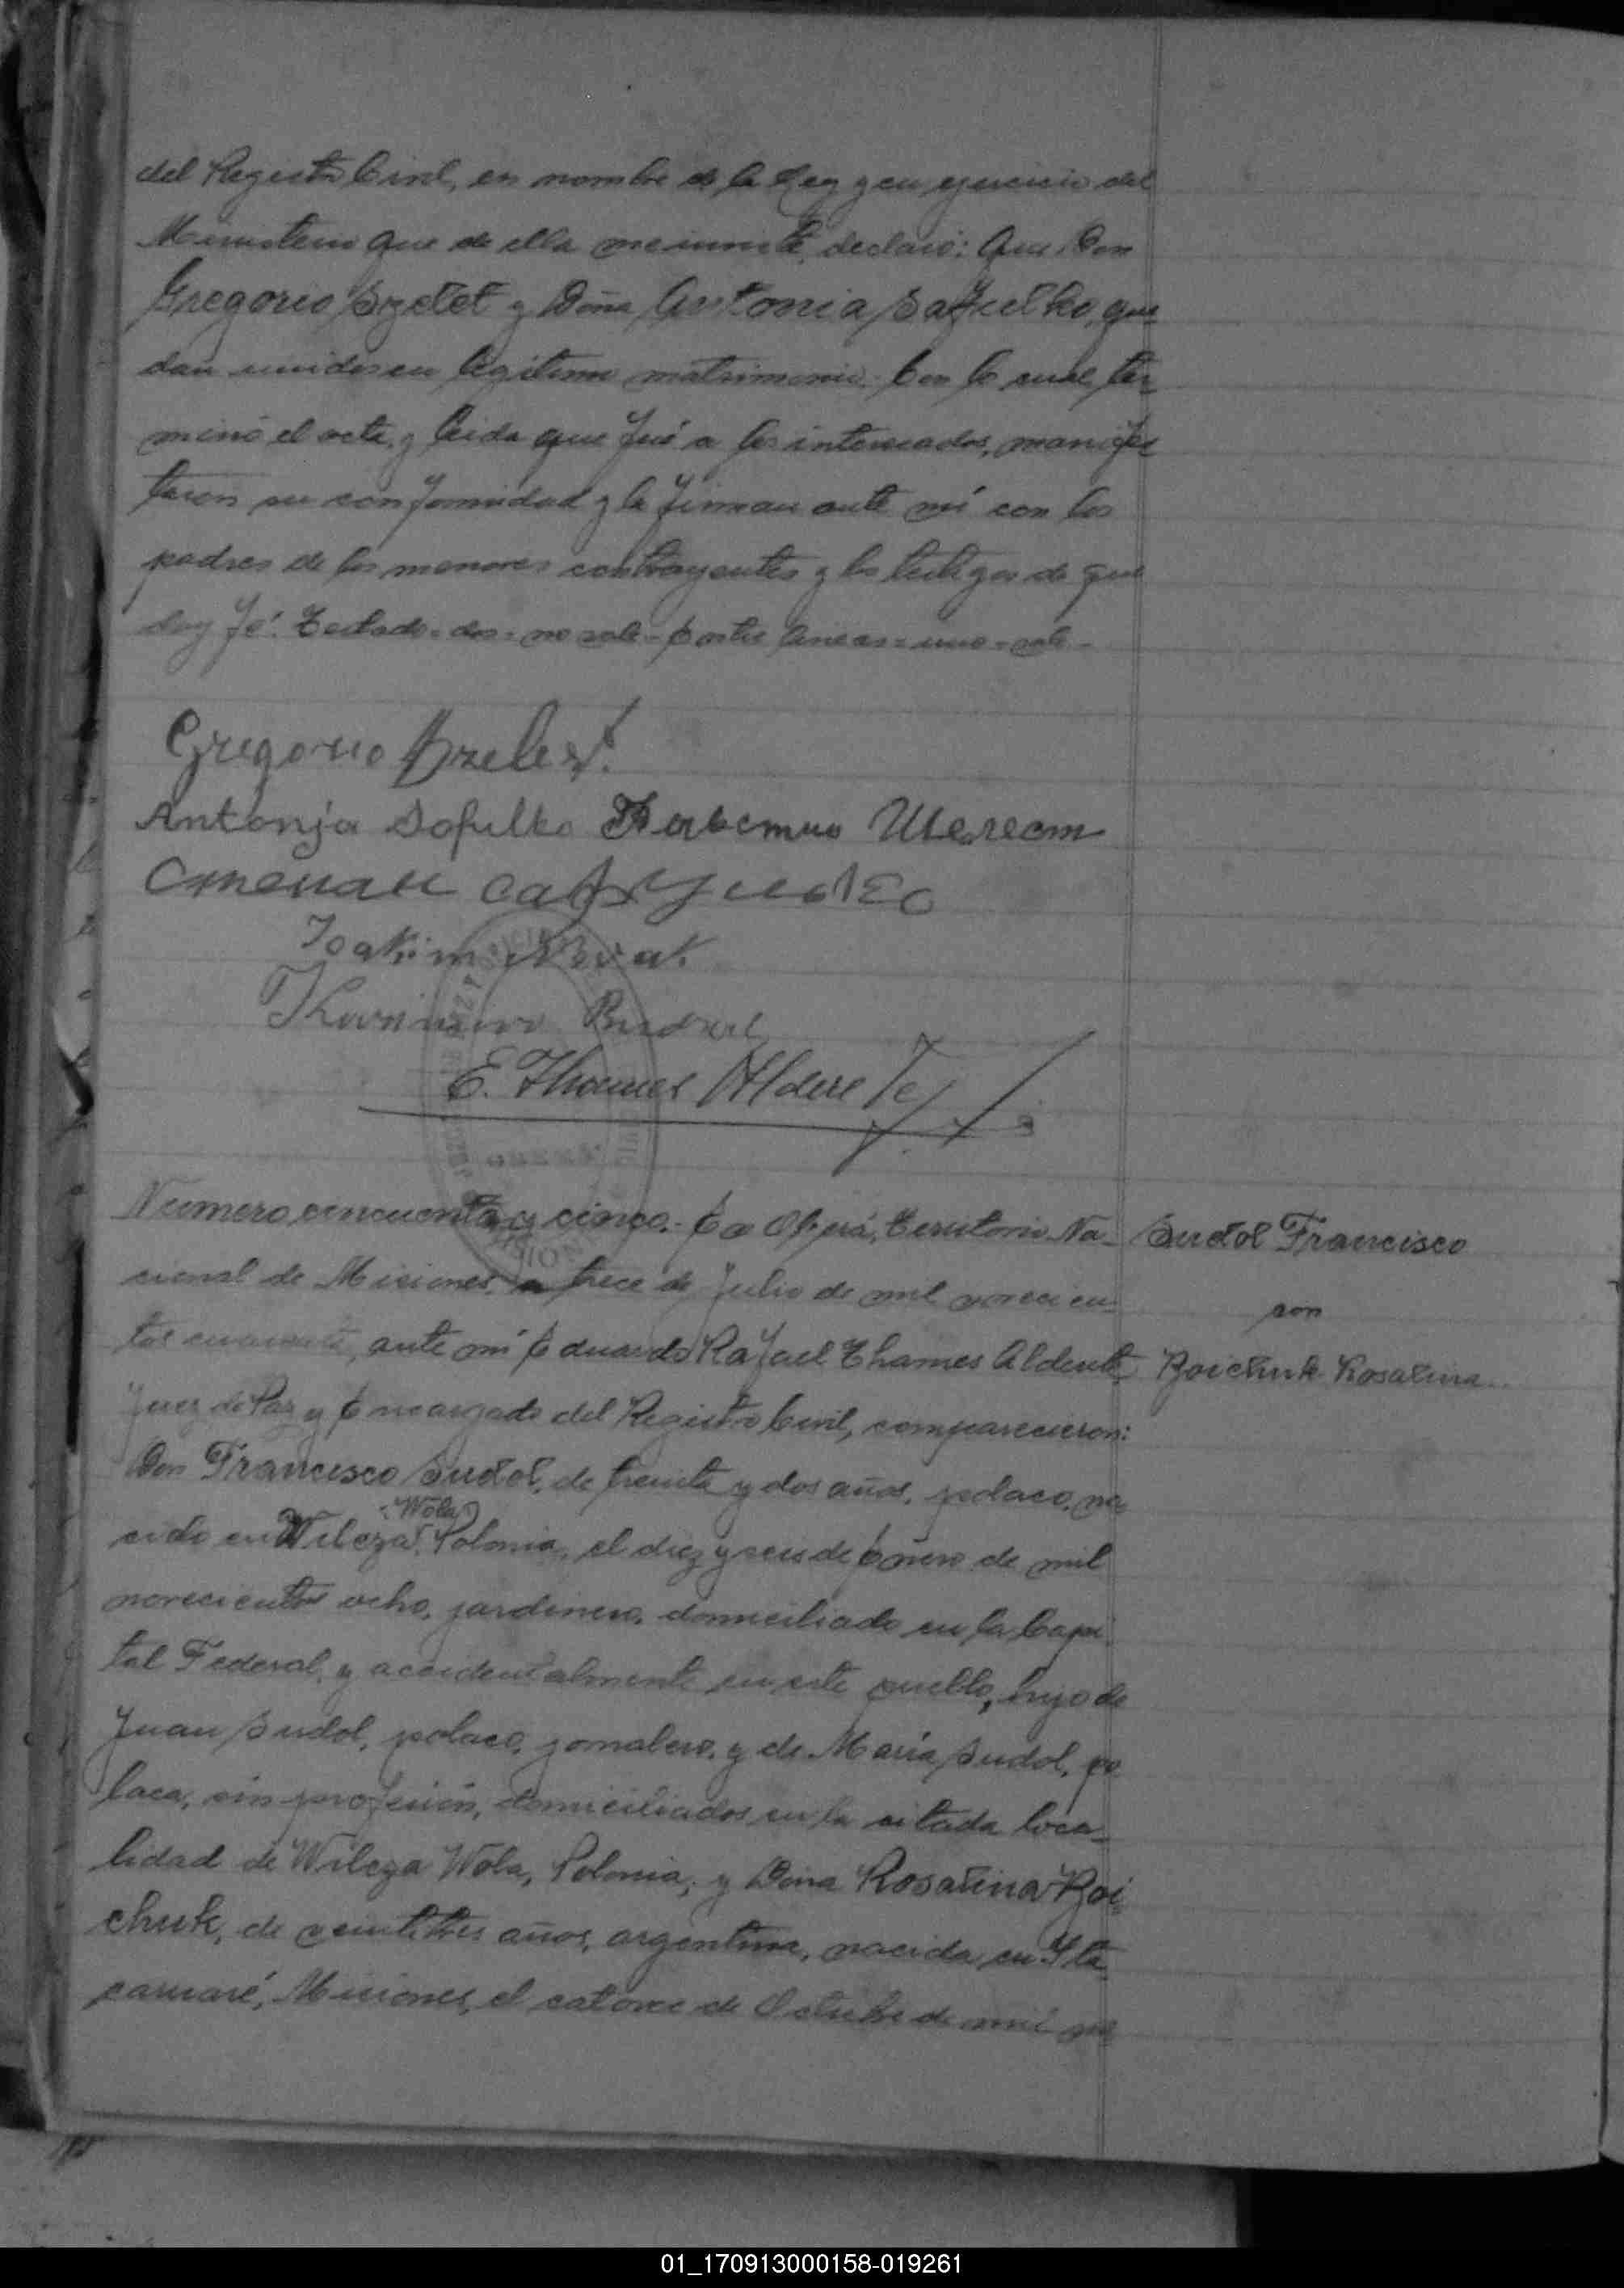 del Registro Civil, en nombre de la Ley y en ejercicio del
Ministerio que de ella me inviste, declaro: Que Don
Gregorio Szelest y Doña Antonia Safulko, que-
dan unidos en legítimo matrimonio. Con lo cual ter-
minó el acta, y leida que fué a los interesados, manifes-
taron su conformidad y la firman ante mí con los
padres de los menores contrayentes y los testigos de que
doy fé. Testado=dos=no vale=Entre lineas=uno=vale.-
Gregorio Szelest.
Antonja Safulko Шелест
Степан
Joakim Novak
E. Thames Alderete
Número cincuenta y cinco.- En Oberá, Territorio Na-
cional de Misiones, a trece de Julio de mil novecien-
tos cuarenta, ante mí Eduardo Rafael Thames Alderete,
Juez de Paz y Encargado del Registro Civil, comparecieron:
Don Francisco Sudol, de treinta y dos años, polaco, na-
cido en Wilcza Wola, Polonia, el diez y seis de Enero de mil
novecientos ocho, jardinero, domiciliado en la Capi-
tal Federal, y accidentalmente en este pueblo, hijo de
Juan Sudol, polaco, jornalero, y de María Sudol, po-
laca, sin profesión, domiciliados en la citada loca-
lidad de Wilcza Wola, Polonia; y Doña Rosalina Boi-
chuk, de veintitres años, argentina, nacida en Ita-
caruaré, Misiones, el catorce de Octubre de mil no-
Sudol Francisco
con
Boichuk Rosalina
01_170913000158-019261